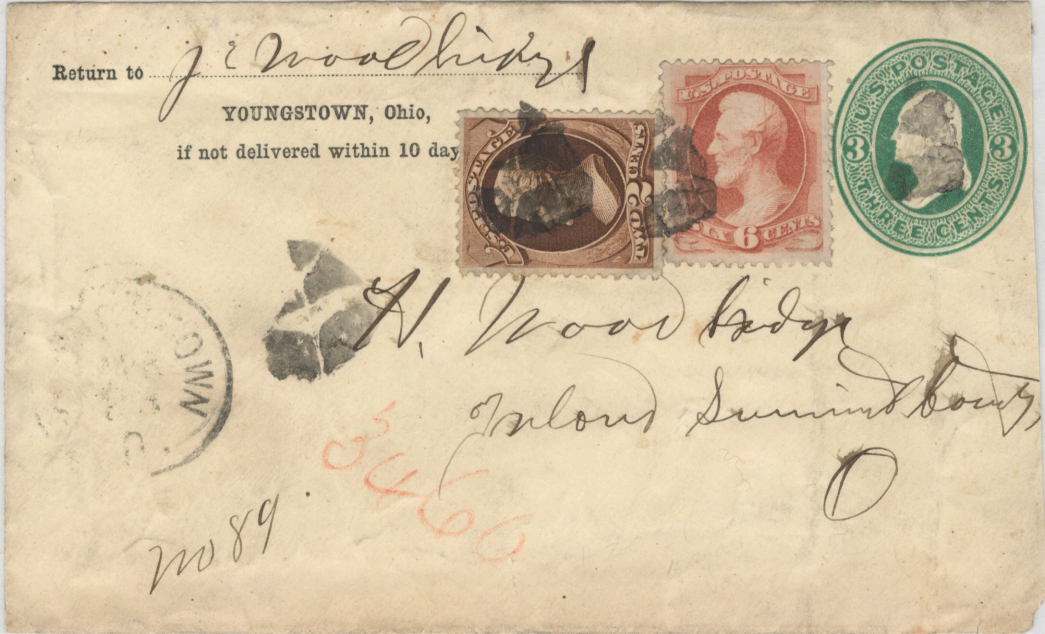 Return to J E Woodbridge
YOUNGSTOWN, Ohio,
if not delivered within 10 day
U.S. POSTAGE
TWO CENTS
U.S. POSTAGE
SIX 6 CENTS
U.S. POSTAGE
3 3
THREE CENTS
H. Woodbridge
Inland Summit County,
O
3460
No 89
OWN